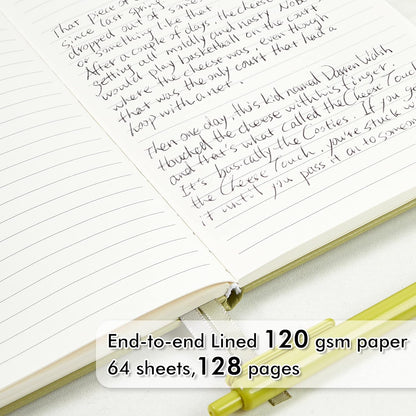 That piece of
Since last spring
dropped out of some
or something like that
After a couple of days, the cheese
getting all moldy and nasty. Nobody
would play basketball on the court
where the cheese was, even though
that was the only court that had a
hoop with a net.
Then one day, this kid named Darren Walsh
touched the cheese with his finger,
and that's what called the Cheese Touch
It's basically the Cooties. If you get
the Cheese Touch, you're stuck
it until you pass it on to someone
End-to-end Lined 120 gsm paper
64 sheets,128 pages